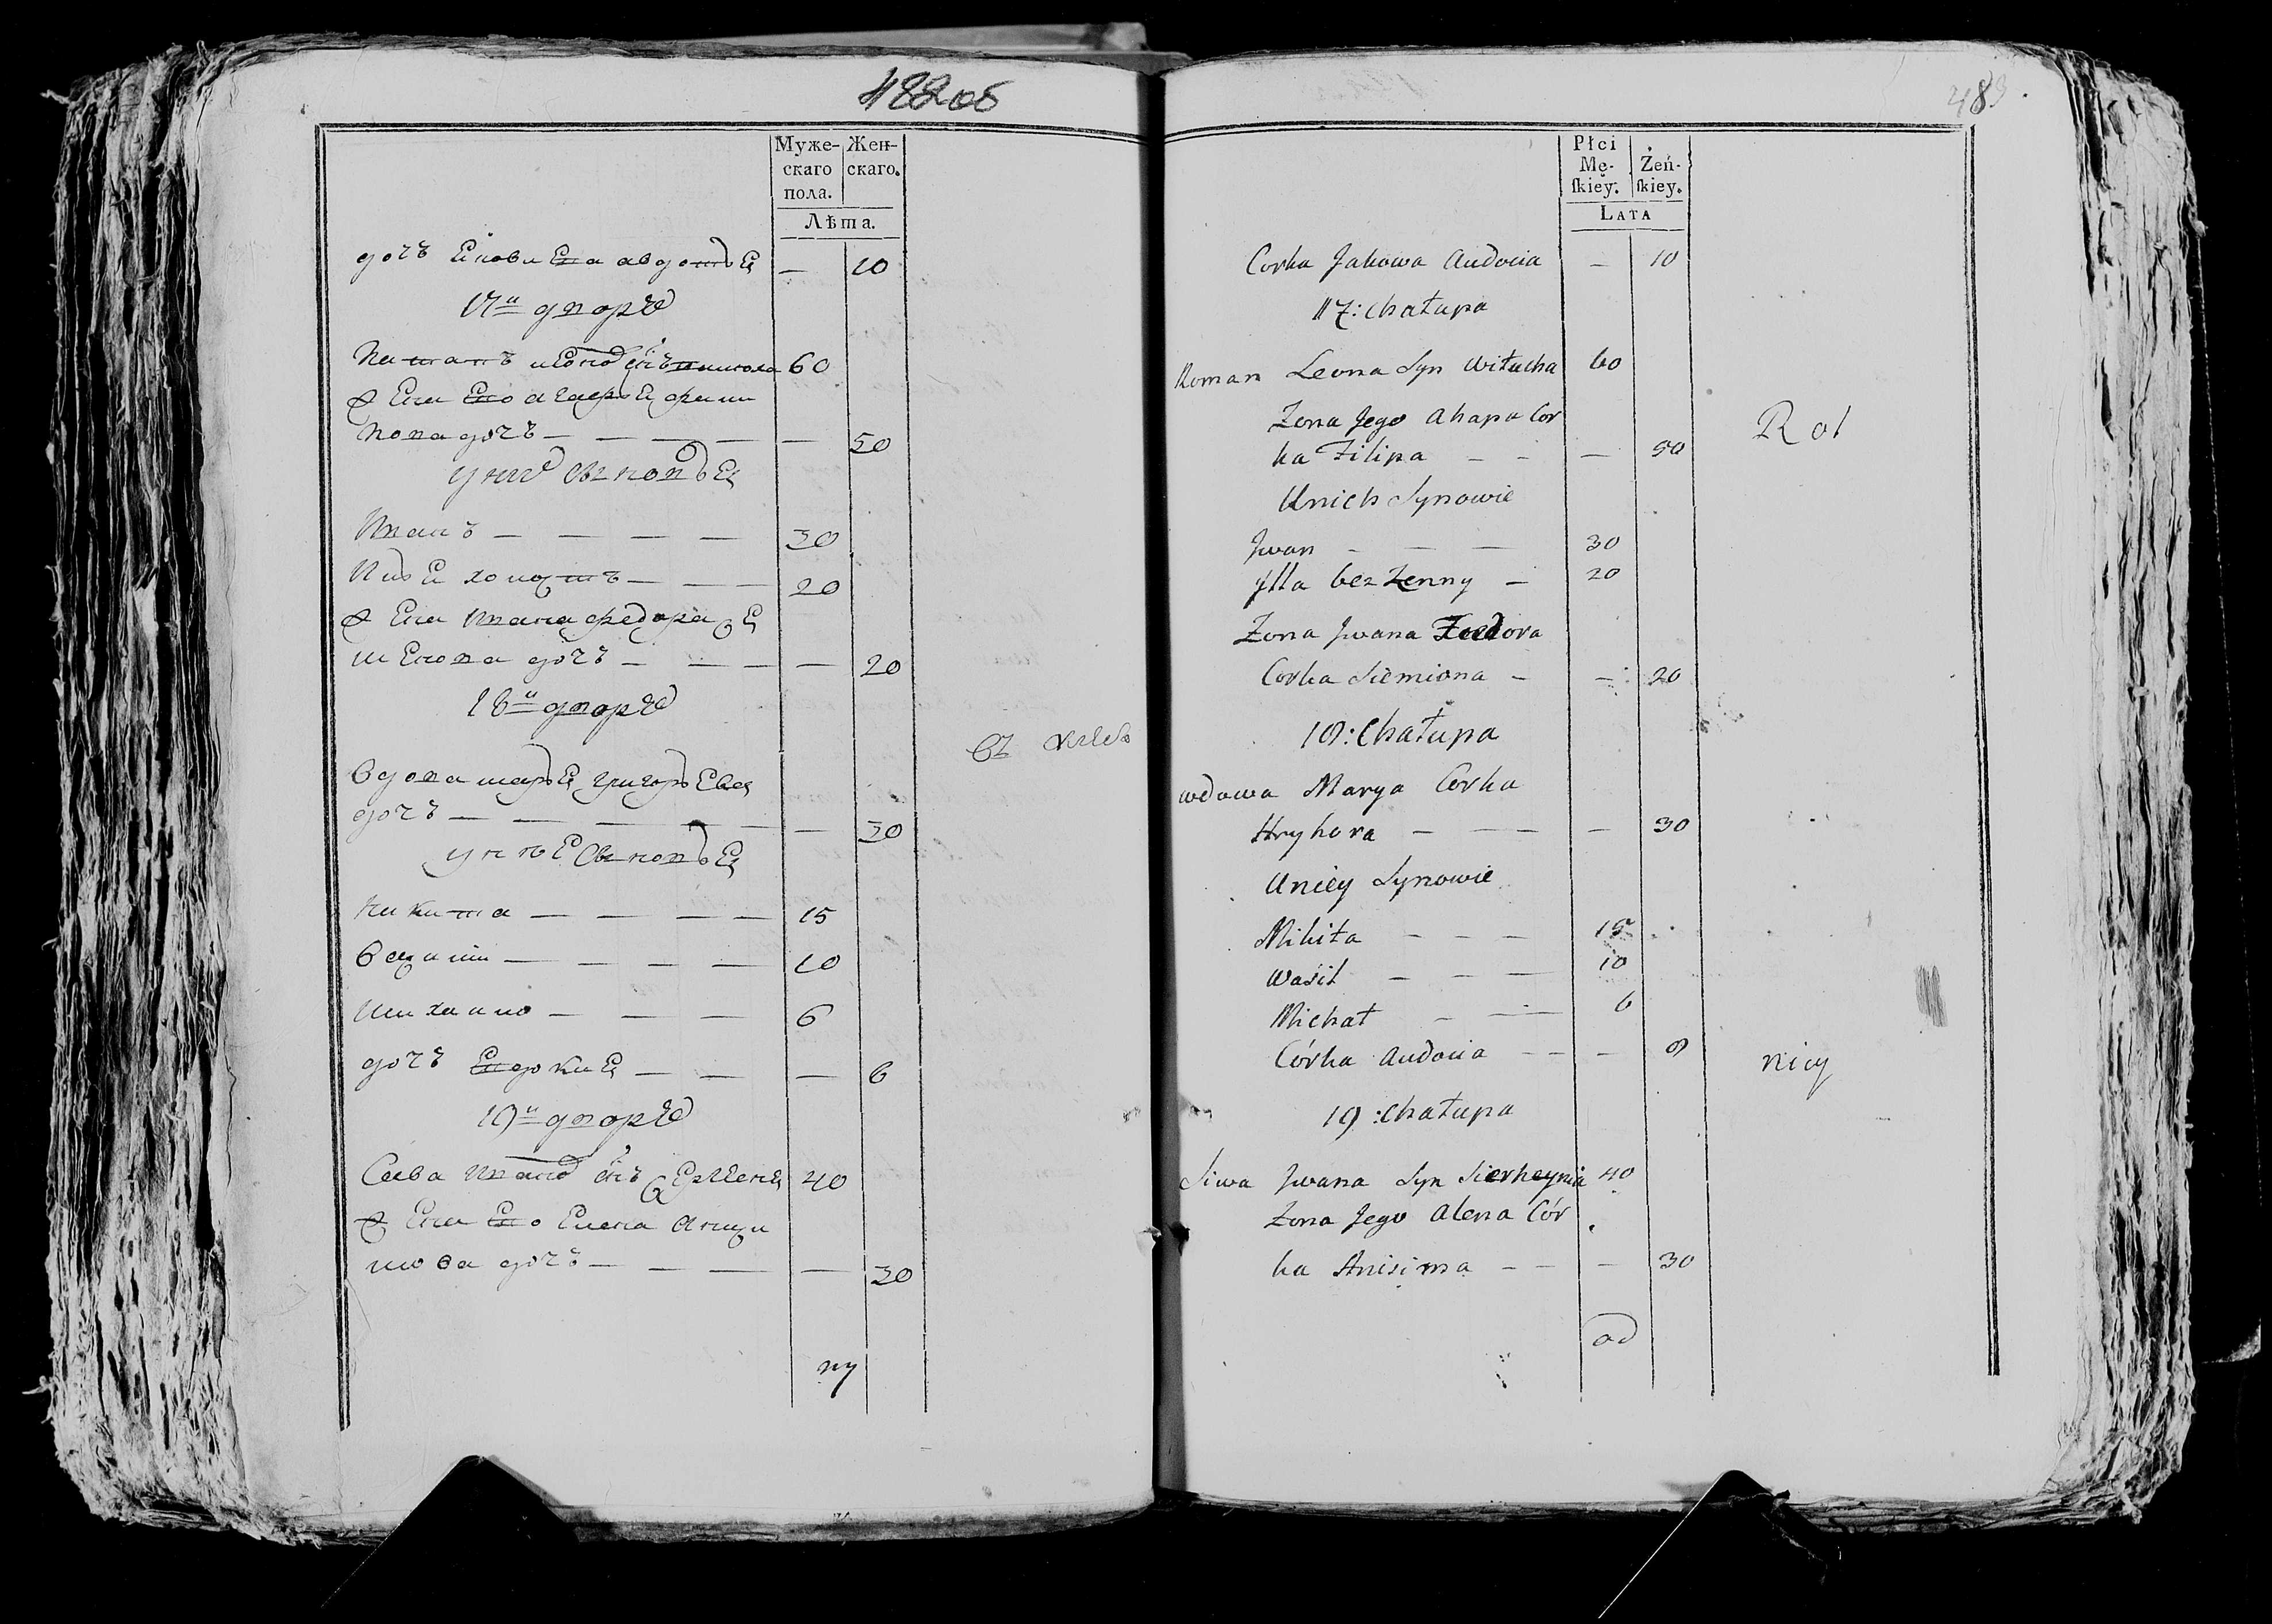 488 об
Муже-
скаго
пола.
Жен-
скаго.
Лѣта.
дочь Авдотья — 10
17й дворъ
60
жена его Агафья Фили
пова дочь — — — — — 50
у них сыновья
Иванъ — — — — 30
Илья холостъ — — — 20
жена Ивана Федора Се
менова дочь — — — — 20
18й дворъ
вдова Марья Григорьева
дочь — — — — — — 30
у ней сыновья
Никита — — — — 15
Василiй — — — — 10
Михайло — — — 6
дочь Евдокия — — — 6
19й дворъ
Сава Ивановъ сынъ 40
жена его Елена Аниси
мова дочь — — — — — 30
489.
Płci
Mę-
skiey.
Żeń-
skiey.
LATA
Corka Jakowa Audocia — 10
17: Chałupa
Roman Leona Syn Witucha 60
Zona Jego Ahapa Cor
ka Filipa — — — 50
Rol
Unich Synowie
Jwan — — — 30
Jlla bez Zenny — 20
Zona Jwana Fiedora
Corka Siemiona — — 20
18: Chałupa
wdowa Marya Corka
Hryhora — — — — 30
Uniey Synowie
Mikita — — — 15
Wasil — — — 10
Michał — — 6
Córka Audocia — — — 8
nicy
19: Chałupa
Siwa Jwana Syn Sierheynia 40
Zona Jego Alena Cór
ka Anisima — — — 30